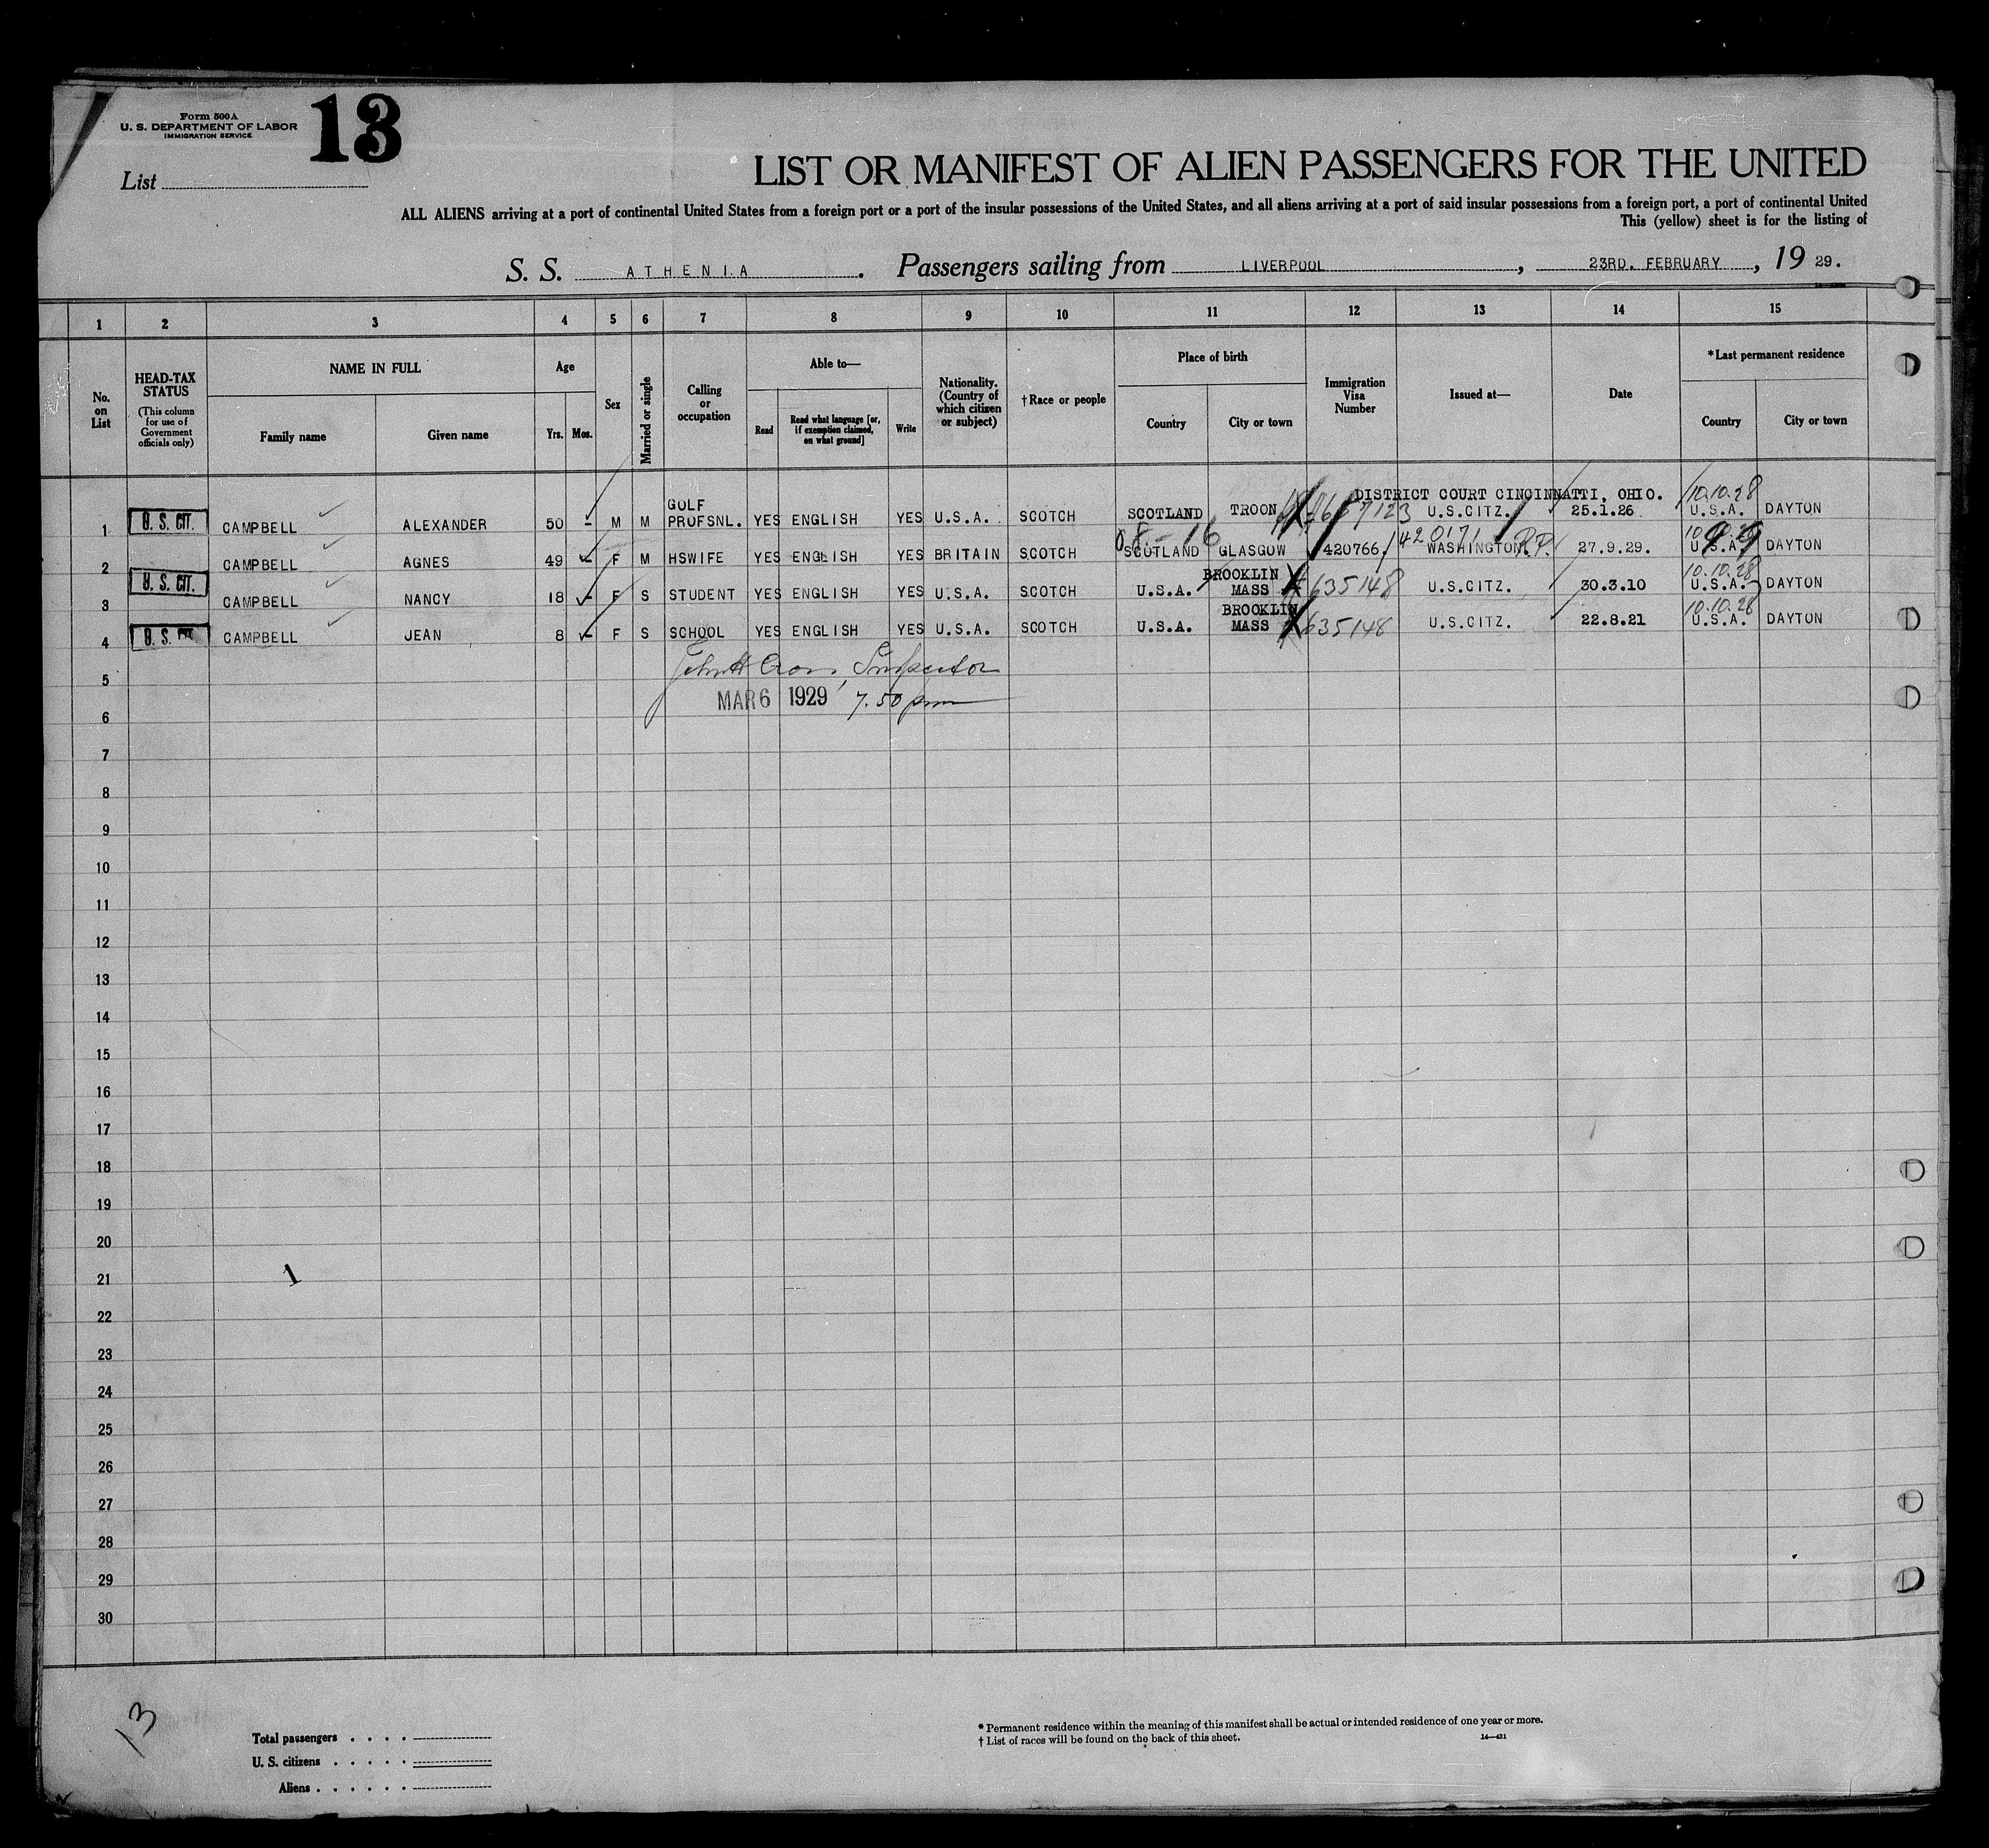 Form 500A
U. S. DEPARTMENT OF LABOR
IMMIGRATION SERVICE
13
List
LIST OR MANIFEST OF ALIEN PASSENGERS FOR THE UNITED
ALL ALIENS arriving at a port of continental United States from a foreign port or a port of the insular possessions of the United States, and all aliens arriving at a port of said insular possessions from a foreign port, a port of continental United
This (yellow) sheet is for the listing of
S. S. ATHENIA. Passengers sailing from LIVERPOOL, 23RD. FEBRUARY, 19 29.
1 2 3 4 5 6 7 8 9 10 11 12 13 14 15
No. on List
HEAD-TAX STATUS
(This column for use of Government officials only)
NAME IN FULL
Family name
Given name
Age
Yrs. Mos.
Sex
Married or single
Calling or occupation
Able to—
Read
Read what language [or, if exemption claimed, on what ground]
Write
Nationality. (Country of which citizen or subject)
†Race or people
Place of birth
Country
City or town
Immigration Visa Number
Issued at—
Date
*Last permanent residence
Country
City or town
GOLF DISTRICT COURT CINCINNATTI, OHIO. 10.10.28
1 U. S. CIT. CAMPBELL ALEXANDER 50 - M M PROFSNL. YES ENGLISH YES U.S.A. SCOTCH SCOTLAND TROON U.S.CITZ. 25.1.26 U.S.A. DAYTON
2 CAMPBELL AGNES 49 - F M HSWIFE YES ENGLISH YES BRITAIN SCOTCH SCOTLAND GLASGOW 420766 420171 WASHINGTON R.P. 27.9.29. U.S.A. DAYTON
BROOKLIN 10.10.28
3 U. S. CIT. CAMPBELL NANCY 18 - F S STUDENT YES ENGLISH YES U.S.A. SCOTCH U.S.A. MASS 635148 U.S.CITZ. 30.3.10 U.S.A. DAYTON
BROOKLIN 10.10.28
4 U. S. CIT. CAMPBELL JEAN 8 - F S SCHOOL YES ENGLISH YES U.S.A. SCOTCH U.S.A. MASS 635148 U.S.CITZ. 22.8.21 U.S.A. DAYTON
5 Inspector
6 MAR 6 1929 7.50 pm
7
8
9
10
11
12
13
14
15
16
17
18
19
20
21 1
22
23
24
25
26
27
28
29
30
13
Total passengers . . . .
U. S. citizens . . . . .
Aliens . . . . . .
* Permanent residence within the meaning of this manifest shall be actual or intended residence of one year or more.
† List of races will be found on the back of this sheet.
14—431